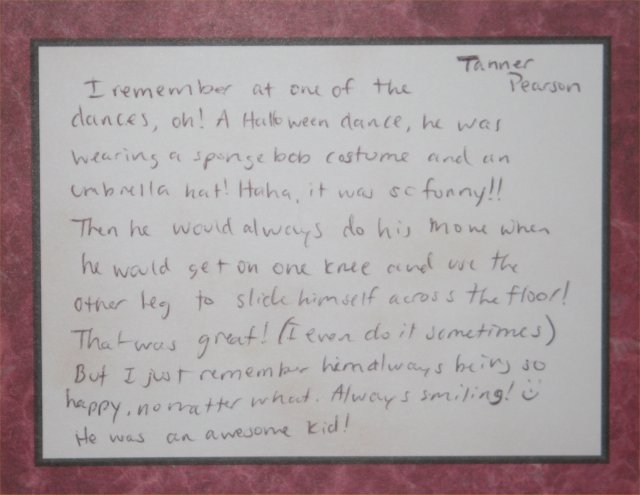 Tanner
Pearson
I remember at one of the
dances, oh! A Halloween dance, he was
wearing a sponge bob costume and an
umbrella hat! Haha, it was so funny!!
Then he would always do his move when
he would get on one knee and use the
other leg to slide himself across the floor!
That was great! (I even do it sometimes)
But I just remember him always being so
happy, no matter what. Always smiling! :)
He was an awesome kid!